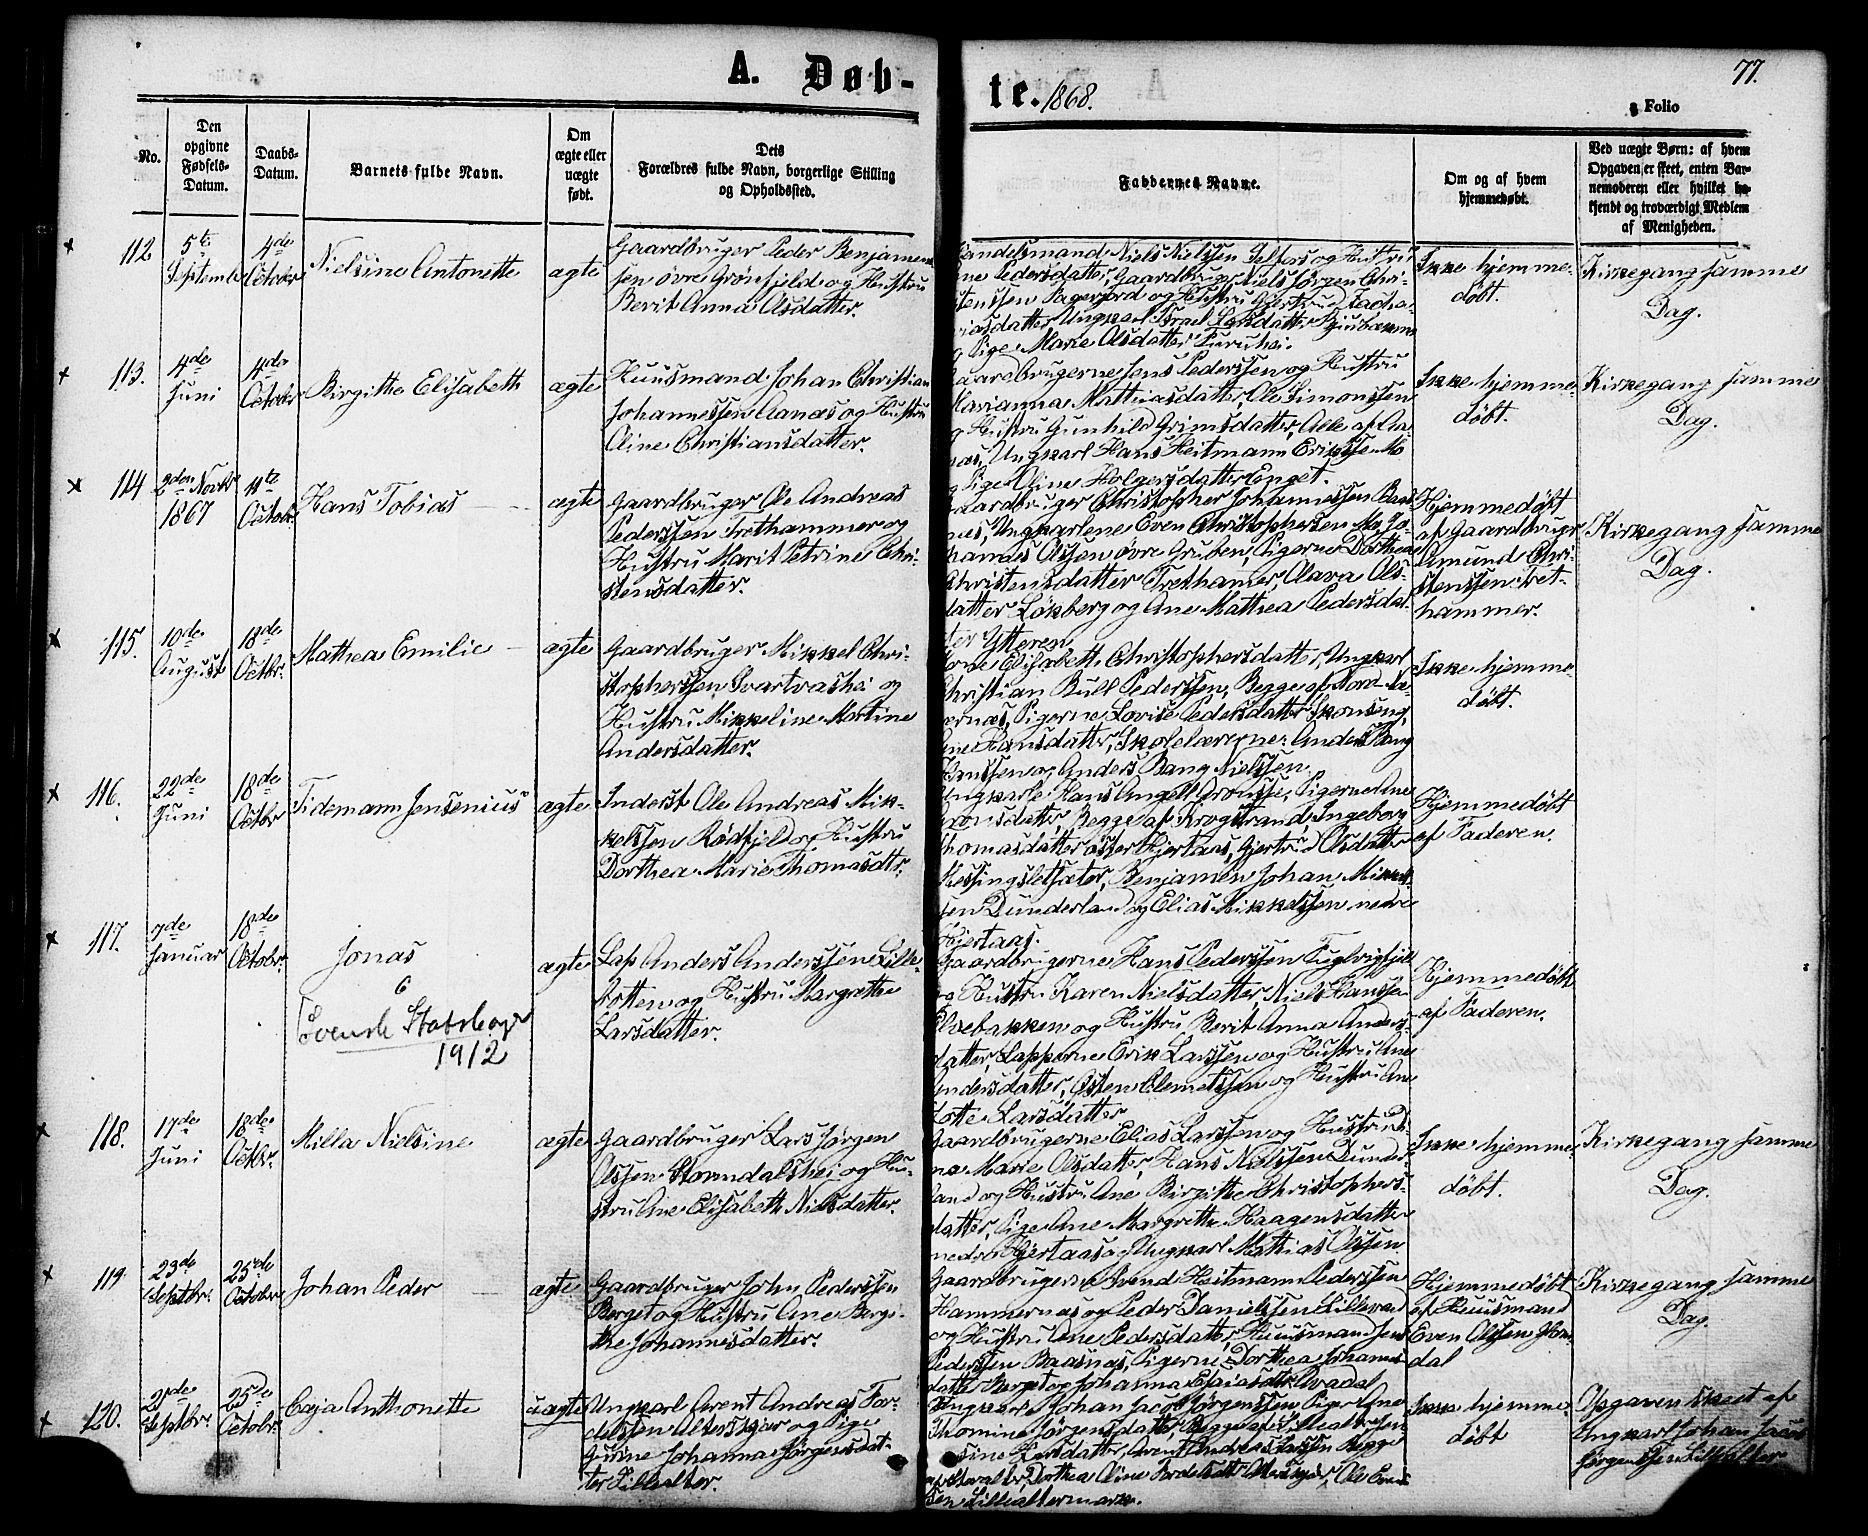 A. Døb-
te. 1868.
77.
Folio
No.
Den
opgivne
Fødsels-
Datum.
Daabs-
Datum.
Barnets fulde Navn.
Om
ægte eller
uægte
født.
Dets
Forældres fulde Navn, borgerlige Stilling
og Opholdssted.
Faddernes Navne.
Om og af hvem
hjemmedøbt.
Ved uægte Børn: af hvem
Opgaven er skeet, enten Bar-
nemoderen eller hvilket be-
kjendt og troværdigt Medlem
af Menigheden.
112
5te
September
4de
October
Nielsine Antonette
ægte
Gaardbruger Peder Benjamin-
sen øvre Grønfjeld og Hustru
Berit Anna Olsdatter.
Handelsmand Niels Nielssen Selfors og Hustru
Ane Pedersdatter, Gaardbruger Niels Jørgen Chri-
stenssen og Hustru Gjertrud Zacha-
riasdatter, Ungkarl Israel
og Pige Marie Olsdatter Furuhei.
Ikke hjemme-
døbt.
Kirkegang samme
Dag.
113.
4de
Juni
4de
October
Birgitte Elisabeth
ægte
Huusmand Johan Christian
Johannessen Aanæs og Hustru
Aline Christiansdatter.
Gaardbrugerne Jens Pederssen og Hustru
Marianna Mathiasdatter, Ole Simonssen
og Hustru Gunhild Grimsdatter, Alle af Aa-
næs, Ungkarl Hans Heitmann Erikssen Mo
og Pige Aline Holgersdatter Enget.
Ikke hjemme-
døbt.
Kirkegang samme
Dag.
114
2den Novbr
1867
11te
Octobr.
Hans Tobias
ægte
Gaardbruger Ole Andreas
Pederssen Trethammer og
Hustru Marit Petrine Chri-
stensdatter.
Gaardbruger Christopher Johannessen Baas-
næs, Ungkarlene Even Christophersen Mo, Jo-
hannes Olssen øvre Gruben, Pigerne Dorthea
Christensdatter Trethamer, Olava Ols-
datter Løkberg og Ane Mathea Pedersdat-
ter Ytteren.
Hjemmedøbt
af Gaardbruger
Amund Chri-
stenssen Tret-
hammer.
Kirkegang samme
Dag.
115.
10de
August
18de
Octbr.
Mathea Emilie
ægte
Gaardbruger Mikkel Chri-
stopherssen Svartvashei og
Hustru Mikkeline Martine
Andersdatter.
Kone Elisabeth Christophersdatter, Ungkarl
Christian Bull Pederssen, Begge af Nord-
Pigerne Lovise Pedersdatter Skonseng,
Ane Hansdatter, Skolelærerne Anders Bang
Hanssen og Anders Bang Nielssen.
Ikke hjemme-
døbt.
116.
22de
Juni
18de
Octbr
Tidemann Jensenius
ægte
Inderst Ole Andreas Mik-
kelssen Rødfjeld og Hustru
Dorthea Marie Thomasdtr.
Ungkarle Hans Angell Aronsse, Pigerne Ane
Aronsdatter, Begge af Krogstrand, Ingeborg
Thomasdatter øster Hjertaas, Gjertrud Olsdatter
Messingsletsæter, Benjamin Johan Mikkel-
sen Dunderland og Elias Mikkelssen nedre
Hjertaas.
Hjemmedøbt
af Faderen.
117.
7de
Januar
18de
Octobr.
Jonas
Svensk Statsborger
1912
ægte
Lap Anders Anderssen Lille-
og Hustru Margrethe
Larsdatter.
Gaardbrugerne Hans Pederssen
og Hustru Karen Nielsdatter, Niels Hanssen
Elvebakken og Hustru Berit Anna Anders-
datter, Lapperne Erik Larssen og Hustru Ane
Andersdatter, Østen Clemetssen og Hustru Ane
Lotte Larsdatter
Hjemmedøbt
af Faderen.
118.
17de
Juni
18de
Octbr.
Milla Nielsine
ægte
Gaardbruger Lars Jørgen
Olssen Stormdalshei og Hu-
stru Ane Elisabeth Nielsdatter.
Gaardbrugerne Elias Larssen og Hustru
Marie Olsdatter, Hans Nielssen Dunder-
land og Hustru Ane Birgitte Christophers-
datter, Pige Ane Margrethe Haagensdatter
nedre Hjertaas og Ungkarl Mathias Olssen
Ikke hjemme-
døbt.
Kirkegang samme
Dag.
119
23de
Septbr.
25de
Octobr.
Johan Peder
ægte
Gaardbruger John Pederssen
Berget og Hustru Ane Bergi-
the Johannesdatter.
Gaardbrugerne Svend Heitmann Pederssen
Hammernæs og Peder Danielssen
og Hustru Ane Pedersdatter, Huusmand Jens
Pederssen Baasnæs, Pigerne Dorthea Johannes-
datter Berget og Johanna
Hjemmedøbt
af Huusmand
Even Olssen
dal
Kirkegang samme
Dag.
120.
21de
Septbr.
25de
Octobr.
Caja Anthonette
uægte
Ungkarl Arent Andreas For-
delssen Alterskjær og Pige
Gurine Johanna Jørgensdat-
ter Lillealter.
Ungkarle Johan Jacob Jørgenssen, Pige Ane
Thomine Jørgensdatter, Begge af Lillealter, Jen-
sine Larsdatter, Arent Andreas Larssen Begge
Dorthea Oline Fordelsdatter Alterskjær, Ole
Lillealtermark.
Ikke hjemme-
døbt
Opgaven skeet af
Ungkarl Johan Jacob
Jørgenssen Lillealter